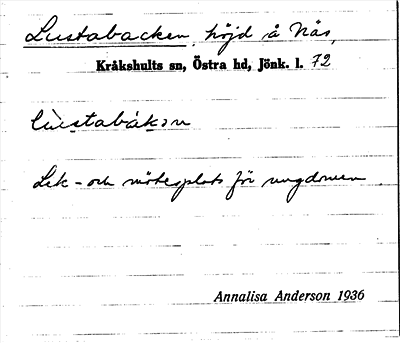 Lustabacken, höjd å Näs,
Kråkshults sn, Östra hd, Jönk. l. 72
Lek- och mötesplats för ungdomen
Annalisa Anderson 1936